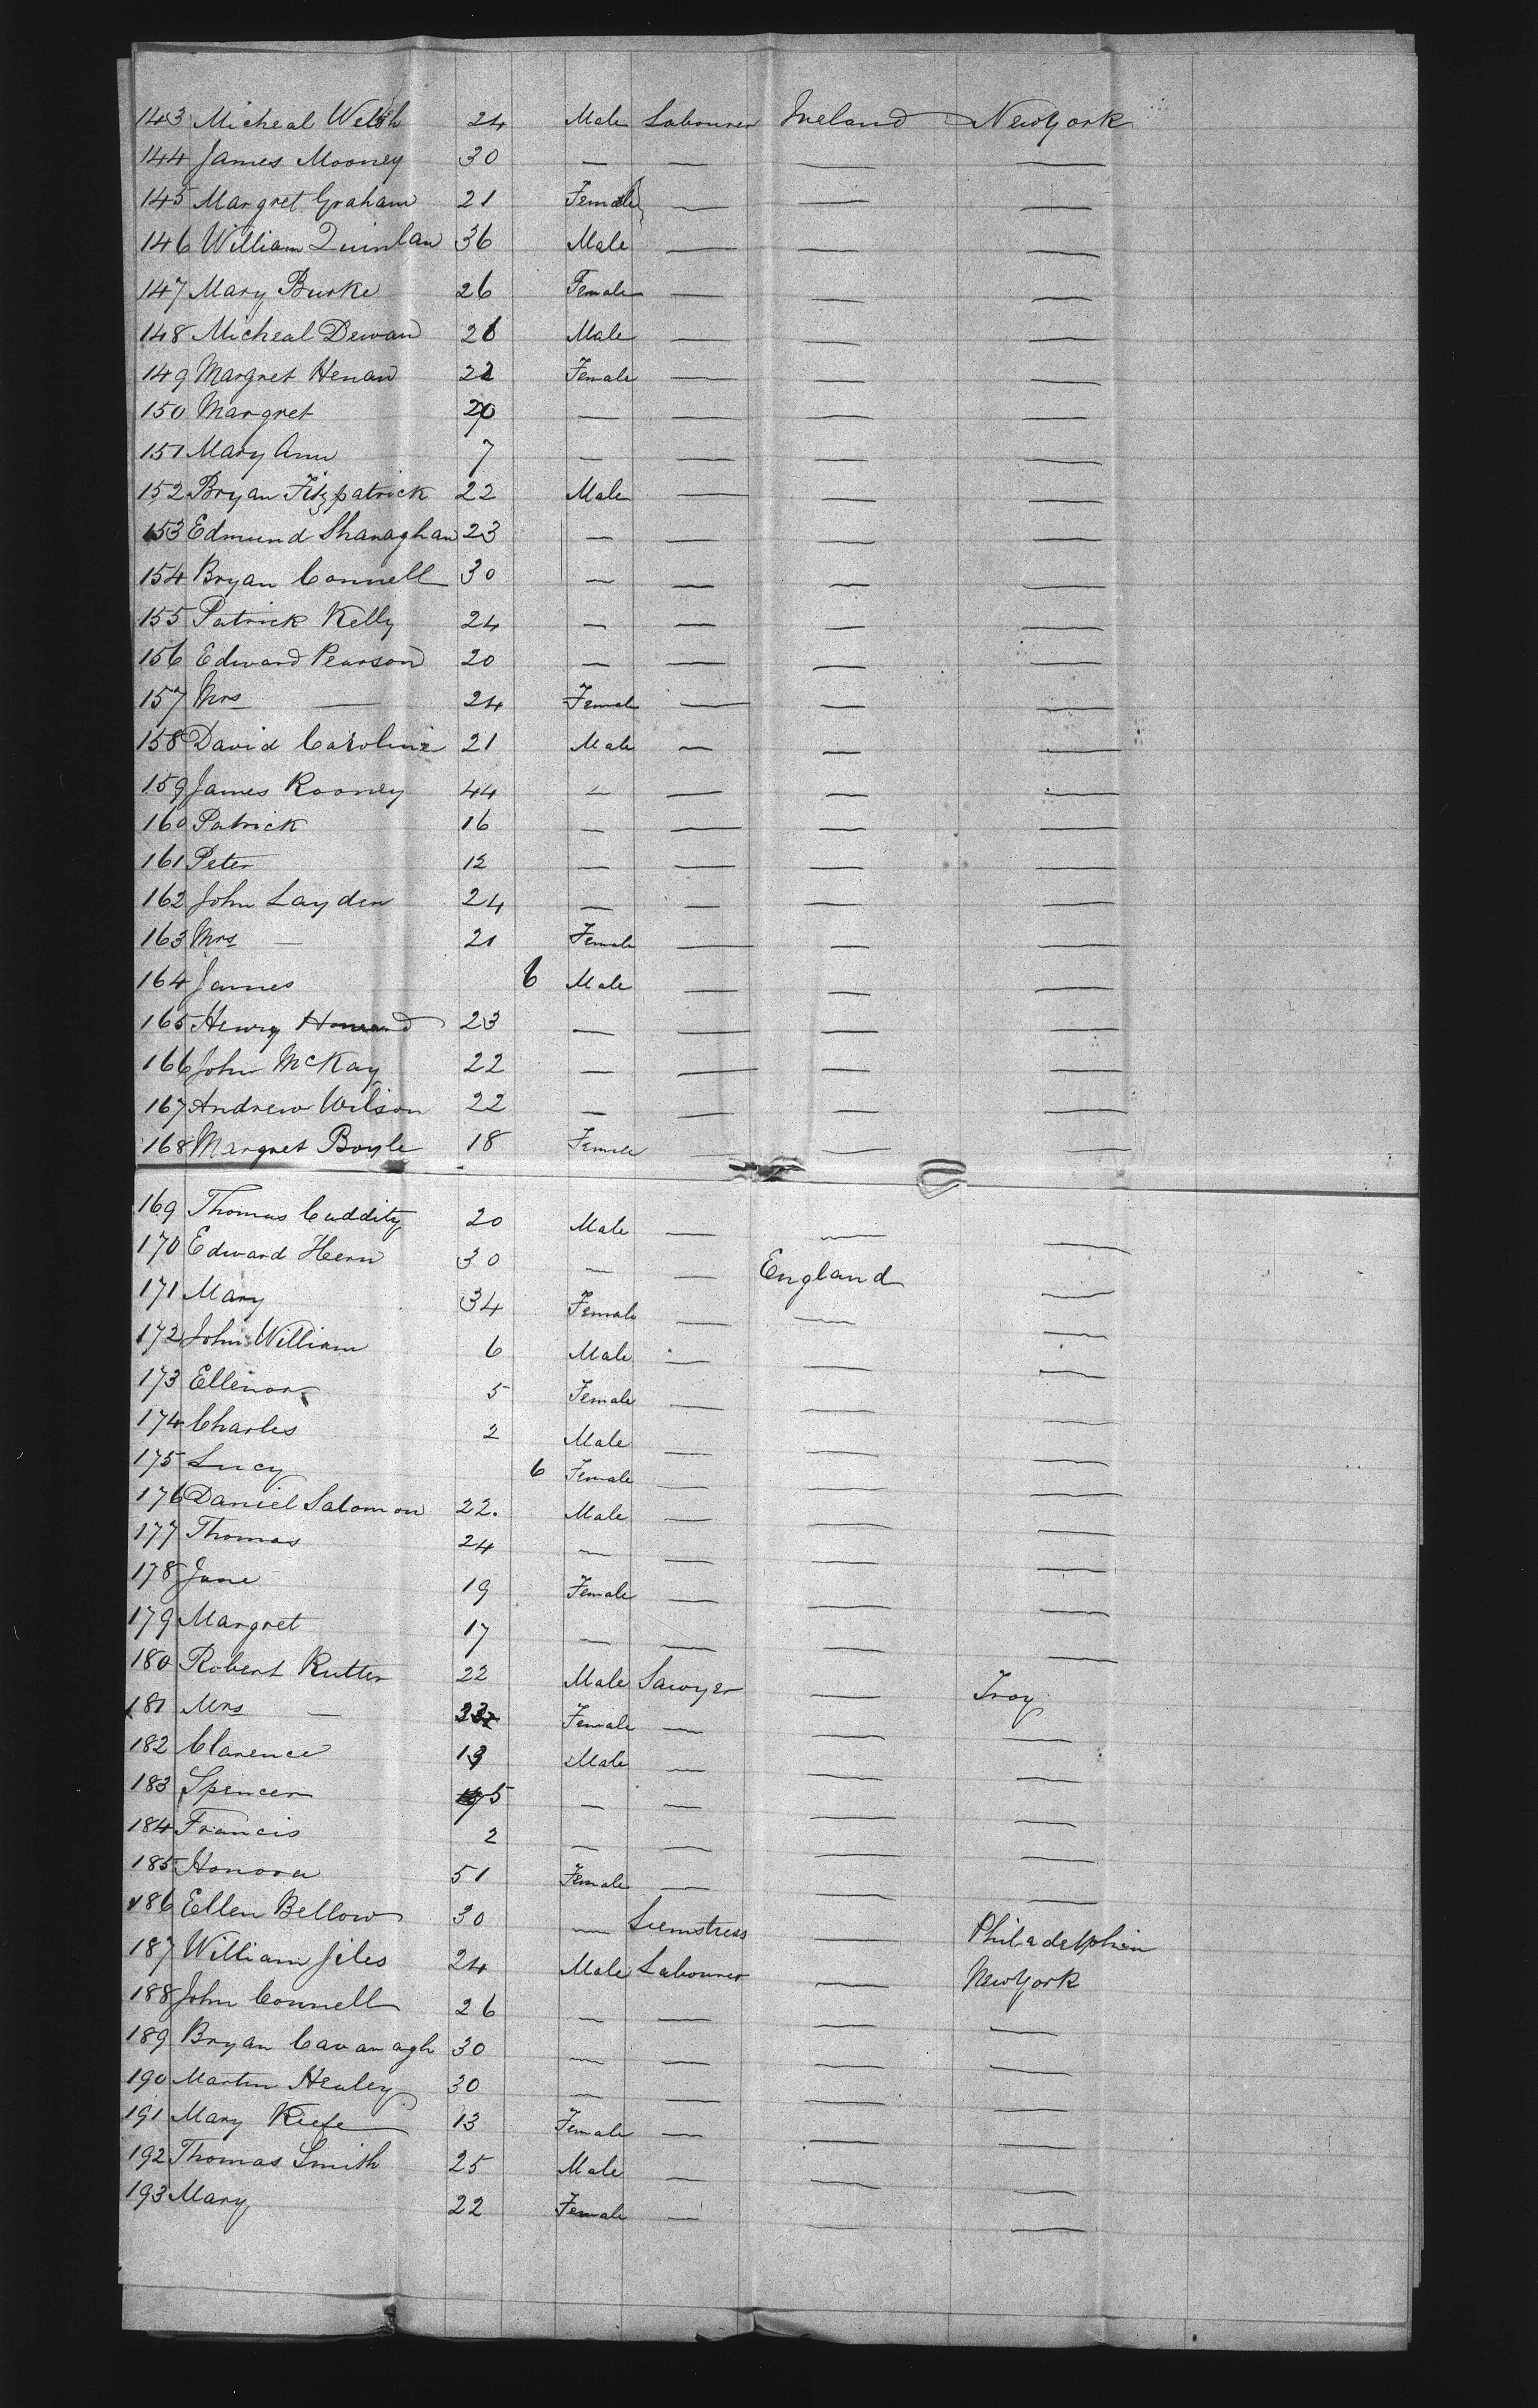 143 Micheal Welsh 24 Male Labourer Ireland New York
144 James Mooney 30 — — — —
145 Margret Graham 21 Female — — —
146 William Quinlan 36 Male — — —
147 Mary Burke 26 Female — — —
148 Micheal Dewan 26 Male — — —
149 Margret Henan 22 Female — — —
150 Margret — — — —
151 Mary Ann 7 — — — —
152 Bryan Fitzpatrick 22 Male — — —
153 Edmund Shanaghan 23 — — — —
154 Bryan Connell 30 — — — —
155 Patrick Kelly 24 — — — —
156 Edward Pearson 20 — — — —
157 Mrs — 24 Female — — —
158 David Caroline 21 Male — — —
159 James Rooney 44 — — — —
160 Patrick 16 — — — —
161 Peter 12 — — — —
162 John Layden 24 — — — —
163 Mrs — 21 Female — — —
164 James 6 Male — — —
165 Henry 23 — — — —
166 John McKay 22 — — — —
167 Andrew Wilson 22 — — — —
168 Margret Boyle 18 Female — — —
169 Thomas Cuddity 20 Male — — —
170 Edward Hern 30 — — England —
171 Mary 34 Female — — —
172 John William 6 Male — — —
173 Ellenor 5 Female — — —
174 Charles 2 Male — — —
175 Lucy 6 Female — — —
176 Daniel Salomon 22. Male — — —
177 Thomas 24 — — — —
178 Jane 19 Female — — —
179 Margret 17 — — — —
180 Robert Rutter 22 Male Sawyer — Troy
181 Mrs — Female — — —
182 Clarence Male — — —
183 Spencer 5 — — — —
184 Francis 2 — — — —
185 Honora 51 Female — — —
186 Ellen Bellow 30 — Semstress — Philadelphia
187 William Jiles 24 Male Labourer — New York
188 John Connell 26 — — — —
189 Bryan Cavanagh 30 — — — —
190 Martin Healey 30 — — — —
191 Mary Keefe 13 Female — — —
192 Thomas Smith 25 Male — — —
193 Mary 22 Female — — —